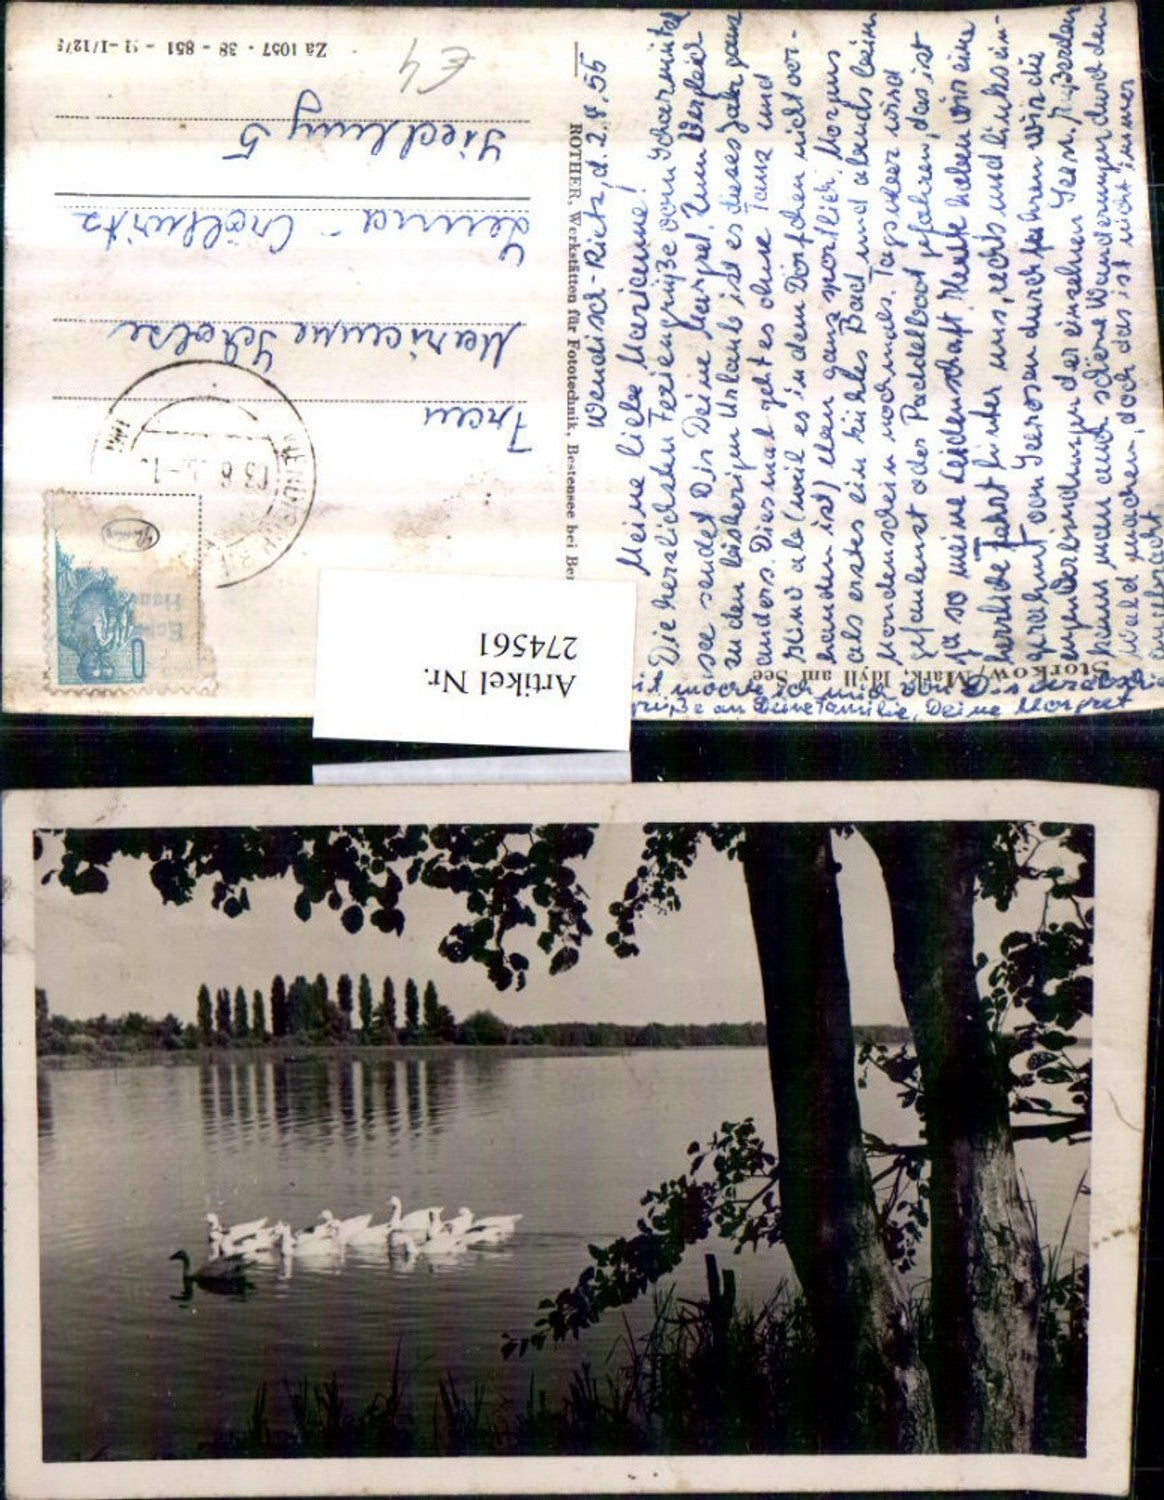 Storkow/Mark, Idyll am See
Wendisch-Rietz, d. 2.8.55
Meine liebe Marianne!
Die herzlichsten Feriengrüße vom Scharmützel
see sendet Dir Deine Margret. Zum Vergleich
zu den bisherigen Urlaub ist es dieses Jahr ganz
anders. Diesmal geht es ohne Tanz und
Kino ab (weil es in dem Dörfchen nicht vor-
handen ist) dann ganz sportlich. Morgens
als erstes ein kühles Bad und abends beim
Mondenschein nochmals. Tagsüber wird
gefaulenzt oder Paddelboot gefahren, das ist
ja so meine Leidenschaft. Heute haben wir eine
herrliche Fahrt hinter uns, rechts und links ein-
gerahmt von Seerosen durchfahren wir die
engen Verbindungen der einzelnen Seen. Außerdem
kann man auch schöne Wanderungen durch den
Wald machen, doch das ist nicht immer
angebracht.
mit möchte ich mich von Dir verabschie
grüße an Deine Familie, Deine Margret
ROTHER, Werkstätten für Fototechnik, Bestensee bei Ber
Frau
Marianne Scholze
Leuna - Cröllwitz
Siedlung 5
€4
Zä 1057 - 38 - 851 - I/12/3
Artikel Nr.
274561